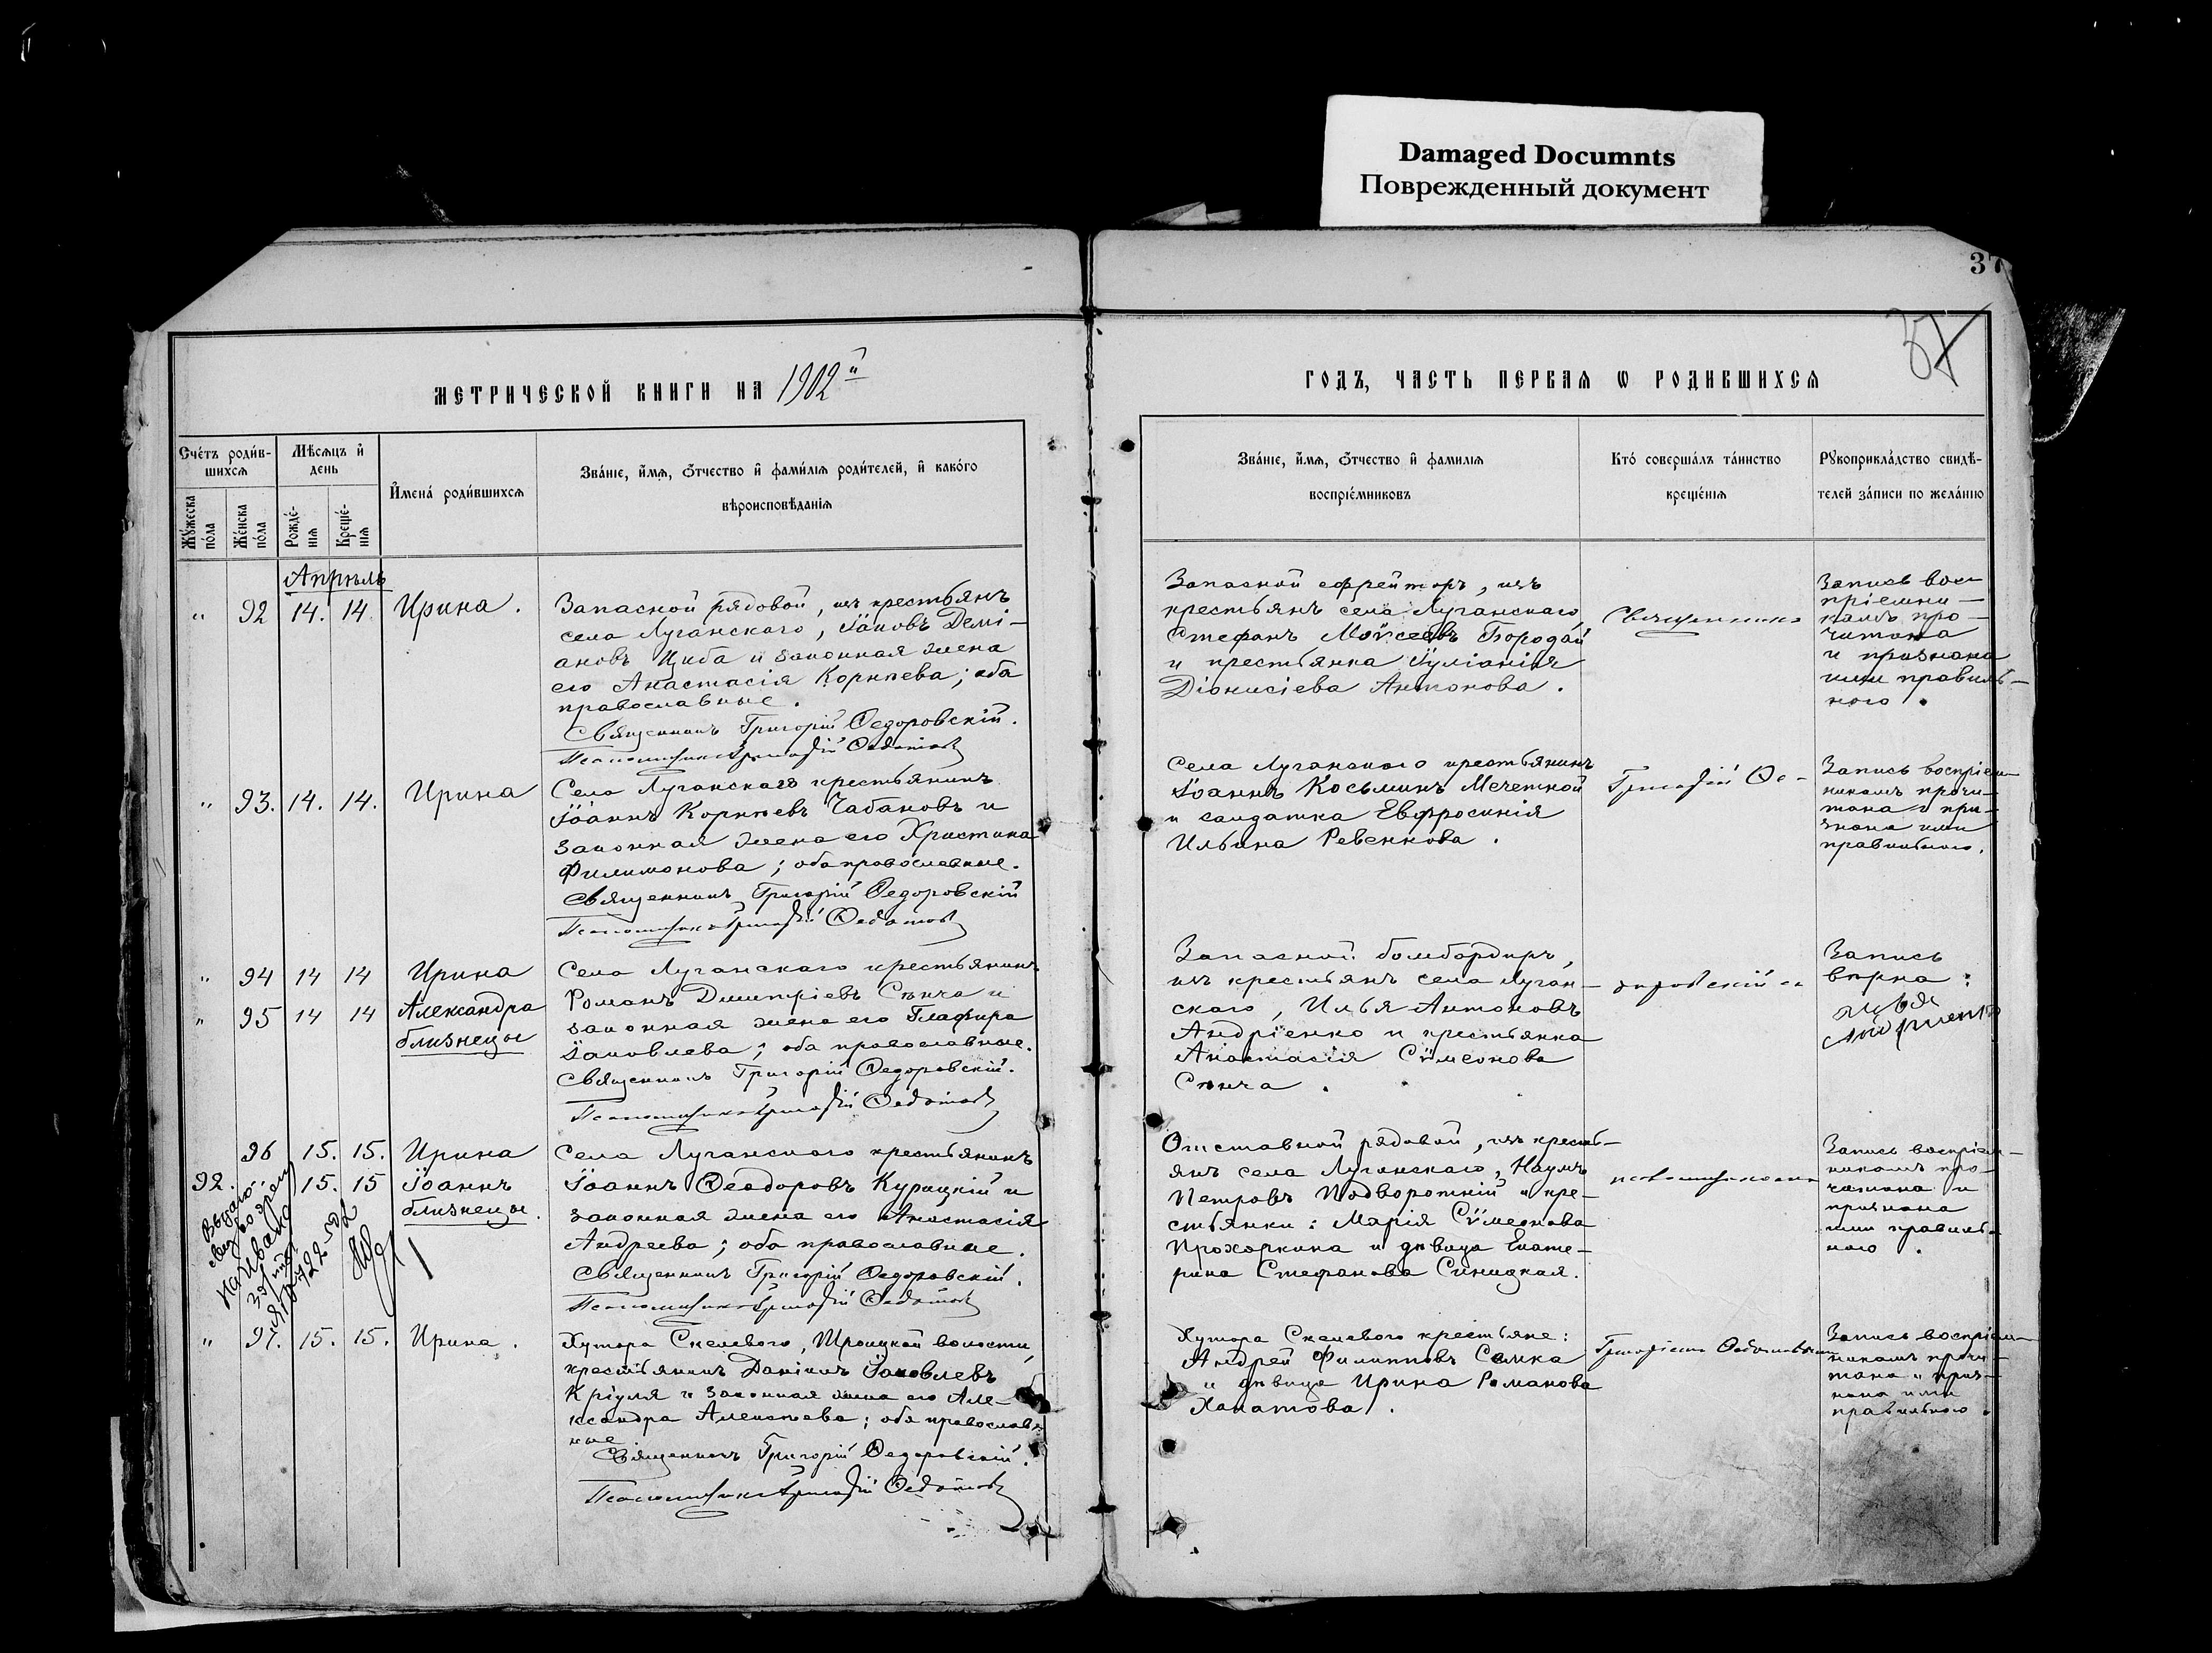 Damaged Documnts
Поврежденный документ
37
37
МЕТРИЧЕСКОЙ КНИГИ НА 1902й
ГОДЪ, ЧАСТЬ ПЕРВАЯ Ѡ РОДИВШИХСЯ
Счетъ родив-
шихся
Мѣсяцъ и
день
Имена родившихся
Званіе, имя, отчество и фамилія родителей, и какого
вѣроисповѣданія
Мужеска
пола
Женска
пола
Рожде-
нія
Креще-
нія
Званіе, имя, отчество и фамилія
воспріемниковъ
Кто совершалъ таинство
крещенія
Рукоприкладство свидѣ-
телей записи по желанію
Апрѣль
" 92 14. 14. Ирина.
Запасной рядовой, изъ крестьянъ
села Луганскаго, Іаковъ Демі-
ановъ Циба и законная жена
его Анастасія Корнѣева; оба
православные.
Священникъ Григорій Ѳедоровскій.
Псаломщикъ Григорій Ѳедотовъ
Запасной ефрейторъ, изъ
крестьянъ села Луганскаго
Стефанъ Моѵсеевъ Бородай
и крестьянка Іуліанія
Діонисіева Антонова.
Священникъ
Запись вос-
пріемни-
камъ про-
читана
и признана
ими правиль-
ного.
" 93. 14. 14. Ирина
Села Луганскаго крестьянинъ
Іоаннъ Корнѣевъ Чабановъ и
законная жена его Христина
Филимонова; оба православные.
Священникъ Григорій Ѳедоровскій
Псаломщикъ Григорій Ѳедотовъ
Села Луганского крестьянинъ
Іоаннъ Косьминъ Мечетной
и солдатка Евфросинія
Ильина Ревенкова.
Григорій Ѳе-
Запись воспріем-
никамъ прочи-
тана и при-
знана ими
правильного.
" 94 14 14 Ирина
" 95 14 14 Александра
близнецы
Села Луганскаго крестьянинъ
Романъ Димитріевъ Сѣнча и
законная жена его Глафира
Іаковлева; оба православные.
Священникъ Григорій Ѳедоровскій.
Псаломщикъ Григорій Ѳедотовъ
Запасной бомбардиръ,
изъ крестьянъ села Луган-
скаго, Илья Антоновъ
Андріенко и крестьянка
Анастасія Сѵмеонова
Сѣнча.
доровскій съ
Запись
вѣрна:
Илья
96 15. 15. Ирина
92. 15. 15 Іоаннъ
близнецы.
Села Луганского крестьянинъ
Іоаннъ Ѳеодоровъ Курицкій и
законная жена его Анастасія
Андреева; оба православные.
Священникъ Григорій Ѳедоровскій.
Псаломщикъ Григорій Ѳедотовъ
Отставной рядовой, изъ кресть-
янъ села Луганскаго, Наумъ
Петровъ Подворотній и кре-
стьянки: Марія Сѵмеонова
Прохоркина и дѣвица Екате-
рина Стефанова Синицкая.
псаломщикомъ
Запись воспріем-
никамъ про-
читана и
признана
ими правиль-
ного.
на Ивана
" 97. 15. 15. Ирина.
Хутора Скелевого, Троицкой волости,
крестьянинъ Даніилъ Іаковлевъ
Кріуля и законная жена его Але-
ксандра Алексѣева; оба православ-
ные
Священникъ Григорій Ѳедоровскій.
Псаломщикъ Григорій Ѳедотовъ
Хутора Скелевого крестьяне:
Андрей Филипповъ Семка
и дѣвица Ирина Романова
Ханатова.
Григоріемъ Ѳедотовымъ
Запись воспріем-
никамъ прочи-
тана и приз-
нана ими
правильного.